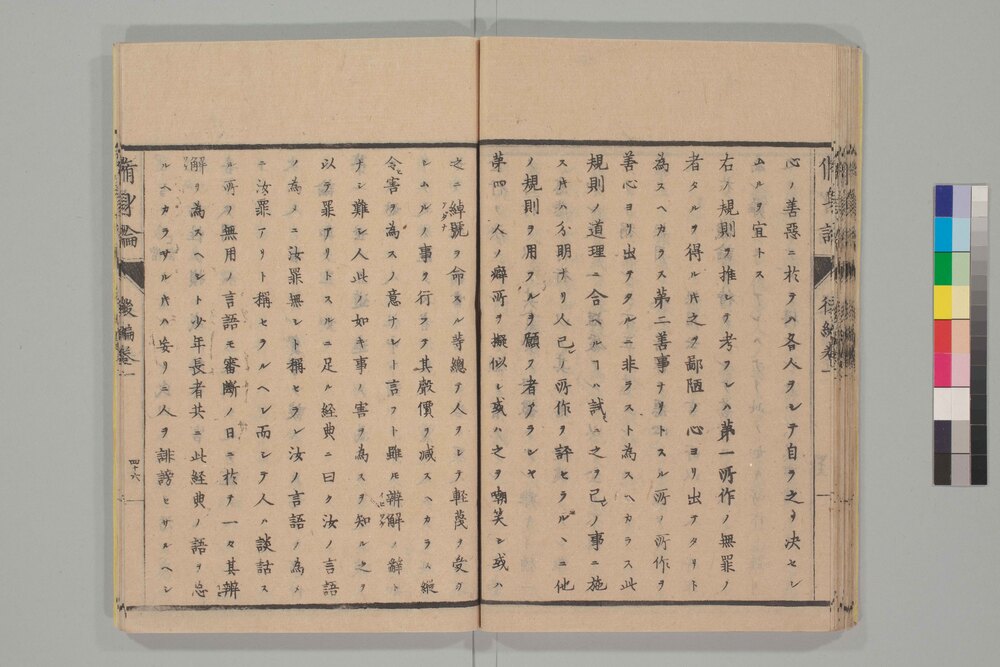 心ノ善惡ニ於テハ各人ヲシテ自ラ之ヲ決セシ
ムルヲ宜トス
右ノ規則ヲ推シテ考フレハ第一所作ノ無罪ノ
者タルヲ得ル𪜈之ヲ鄙陋ノ心ヨリ出テタリト
為スヘカラス第二善事ナリトスル所ノ所作ヲ
善心ヨリ出テタルニ非ラスト為スヘカラス此
規則ノ道理ニ合ヘルヿハ試ニ之ヲ己レノ事ニ施
ス𪜈ハ分明ナリ人己レノ所作ヲ評セラルヽニ他
ノ規則ヲ用フルヲ願フ者ナランヤ
第四 人ノ癖所ヲ擬似シ或ハ之ヲ嘲笑シ或ハ
之ニ綽號ヲ命スル等總テ人ヲシテ輕蔑ヲ受ケ
アダナ
シムルノ事ヲ行フテ其嚴價ヲ減スヘカラス縱
令ヒ害ヲ為スノ意ナシト言フト雖𪜈辨解ノ辭ト
ナシ難シ人此ノ如キ事ノ害ヲ為スヲ知ル之ヲ
以テ罪アリトスルニ足ル経典ニ曰ク汝ノ言語
ノ為メニ汝罪無シト稱セラレ汝ノ言語ノ為メ
ニ汝罪アリト稱セラルヘシ而シテ人ハ談話ス
ル所ノ無用ノ言語モ審斷ノ日ニ於テ一々其辨
解ヲ為スヘシト少年長者共ニ此経典ノ語ヲ忘
ルヘカラサル𪜈ハ妄リニ人ヲ誹謗セサルヘシ
脩身論
後編卷一
四十六